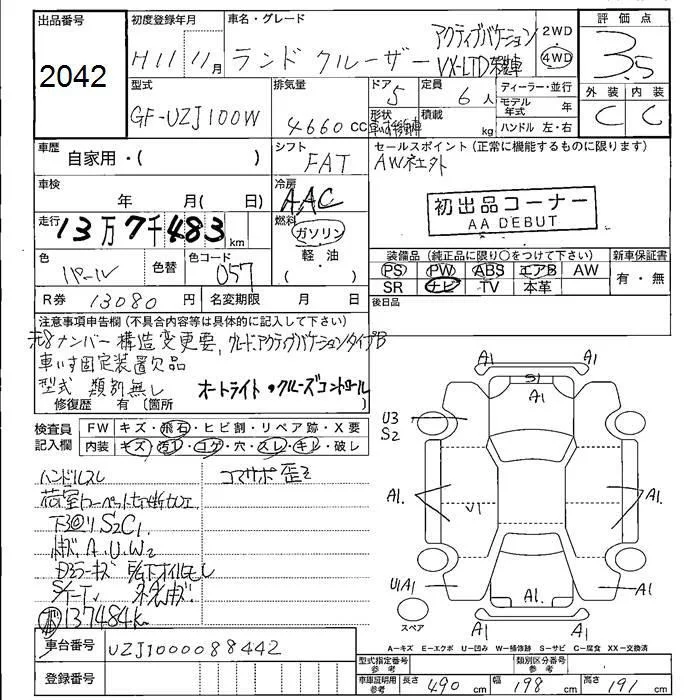 出品番号
2042
初度登録年月
H11 11月
車名・グレード
ランド クルーザー
アクティブバケーション
VX-LTD
2WD
4WD
評価点
3.5
外装 内装
C C
型式
GF-UZJ100W
排気量
4660 cc
ドア
5
形状
定員
6人
積載
kg
ディーラー・並行
モデル年式 年
ハンドル 左・右
車歴
自家用・( )
シフト
FAT
セールスポイント (正常に機能するものに限ります)
AW社外
初出品コーナー
AA DEBUT
車検
年 月( 日)
冷房
AAC
走行
13万7千483km
燃料
ガソリン
軽・油
( )
色
パール
色替
色コード
057
装備品 (純正品に限り○をつけて下さい)
新車保証書
PS PW ABS エアB AW
SR ナビ TV 本革
有・無
R券 13080円
名変期限 月 日
後日品
注意事項申告欄 (不具合内容等は具体的に記入して下さい)
8ナンバー 構造変更要, アクティブバケーションタイプB
車いす固定装置欠品
型式 類別無し オートライト・クルーズコントロール
修復歴 有 (箇所 )
検査員記入欄
FW キズ・飛石・ヒビ割・リペア跡・X要
内装 キズ・汚レ・コゲ・穴・スレ・キレ・破レ
ハンドルスレ
コマサポ歪ミ
下回リS2C1
A.U.W2
137484km
A1 A1
S1
A1
U3
S2
A1. A1.
√1
U1A1
A1.
A1 A1
スペア
A-キズ E-エクボ U-凹み W-補修跡 S-サビ C-腐食 XX-交換済
車台番号
UZJ1000088442
登録番号
型式指定番号 参考
類別区分番号 参考
車庫証明用 参考
長さ 490 cm 幅 198 cm 高さ 191 cm